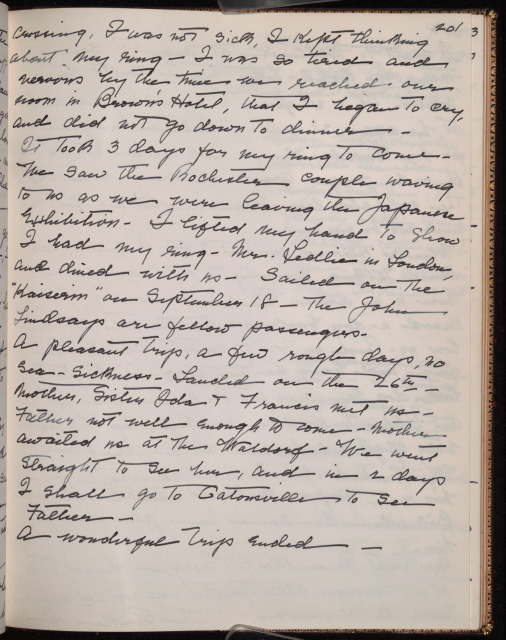 201
crossing, I was not sick, I kept thinking
about my ring - I was so tired and
nervous by the time we reached our
room in Brown's Hotel, that I began to cry,
and did not go down to dinner -
It took 3 days for my ring to come -
We saw the Rochester couple waving
to us as we were leaving the Japanese
Exhibition - I lifted my hand to show
I had my ring - Mr. Ledlie in London,
and dined with us - Sailed on the
"Kaiserin" on September 18 - the John
Lindsays are fellow passengers -
A pleasant trip, a few rough days, no
sea-sickness - Landed on the 26th -
Brother, Sister Ida & Francis met us -
Father not well enough to come - Mother
awaited us at the Waldorf - We went
straight to see her, and in 2 days
I shall go to Catonsville to see
Father -
A wonderful trip ended -